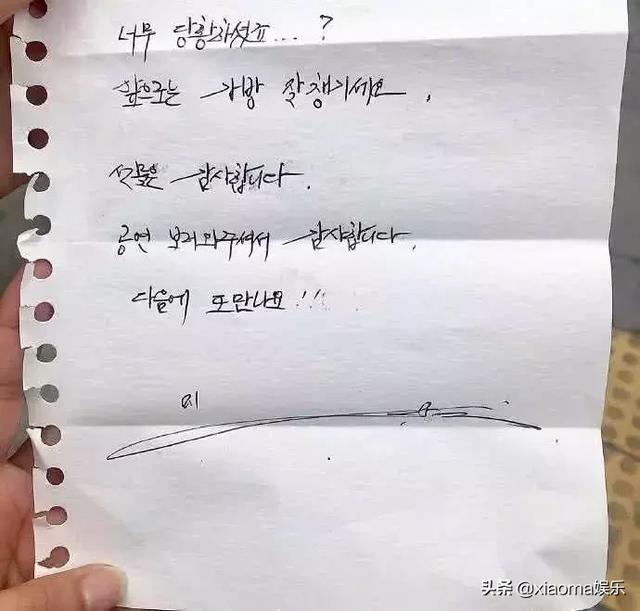 너무 당황하셨죠... ?
앞으로는 가방 잘 챙기세요.
선물은 감사합니다.
공연 보러와주셔서 감사합니다.
다음에 또 만나요!!!
头条 @xiaoma娱乐